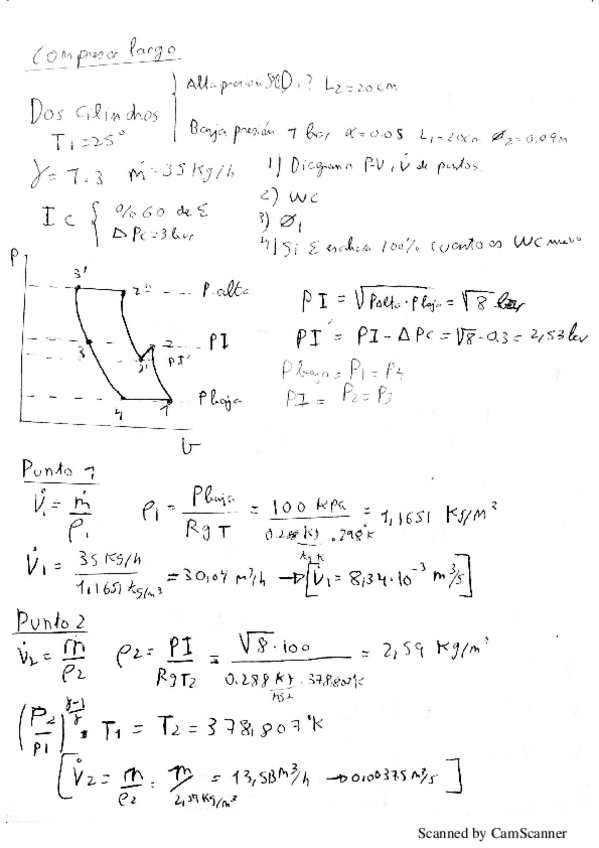 Compresor largo.
Alta presión L2=20cm
Dos cilindros
T1=25°
Baja presión 1 bar α=0.05 L1=20cm Ø2=0.09m
γ=1.3 ṁ=35 Kg/h
1) Diagrama PV, V̇ de puntos.
2) WC
IC { % 60 de Ɛ
ΔPc=3 bar
3) Ø1
4) Si Ɛ 100% cuanto es WC nuevo
P
3' 2'' P.alta
3 2 PI
2' PI'
4 1 P baja
V
PI = √Palta·Pbaja = √8 bar
PI' = PI-ΔPC = √8-0.3 = 2,53 bar
Pbaja = P1 = P4
PI = P2 = P3
Punto 1
V̇1 = ṁ/ρ1 ρ1 = Pbaja/RgT = 100 KPa/0.288 Kj/kgK .298°K = 1,1651 KG/m³
V̇1 = 35 KG/h/1,1651 KG/m³ = 30,04 m³/h → [V̇1 = 8,34·10⁻³ m³/s]
Punto 2
V̇2 = ṁ/ρ2 ρ2 = PI/RgT2 = √8·100/0.288 Kj/kgK · 378.807°K = 2,59 Kg/m³
(P2/P1)^(γ-1/γ) · T1 = T2 = 378,807°K
[V̇2 = ṁ/ρ2 = ṁ/2,59 KG/m³ = 13,513 m³/h → 0,00375 m³/s]
Scanned by CamScanner